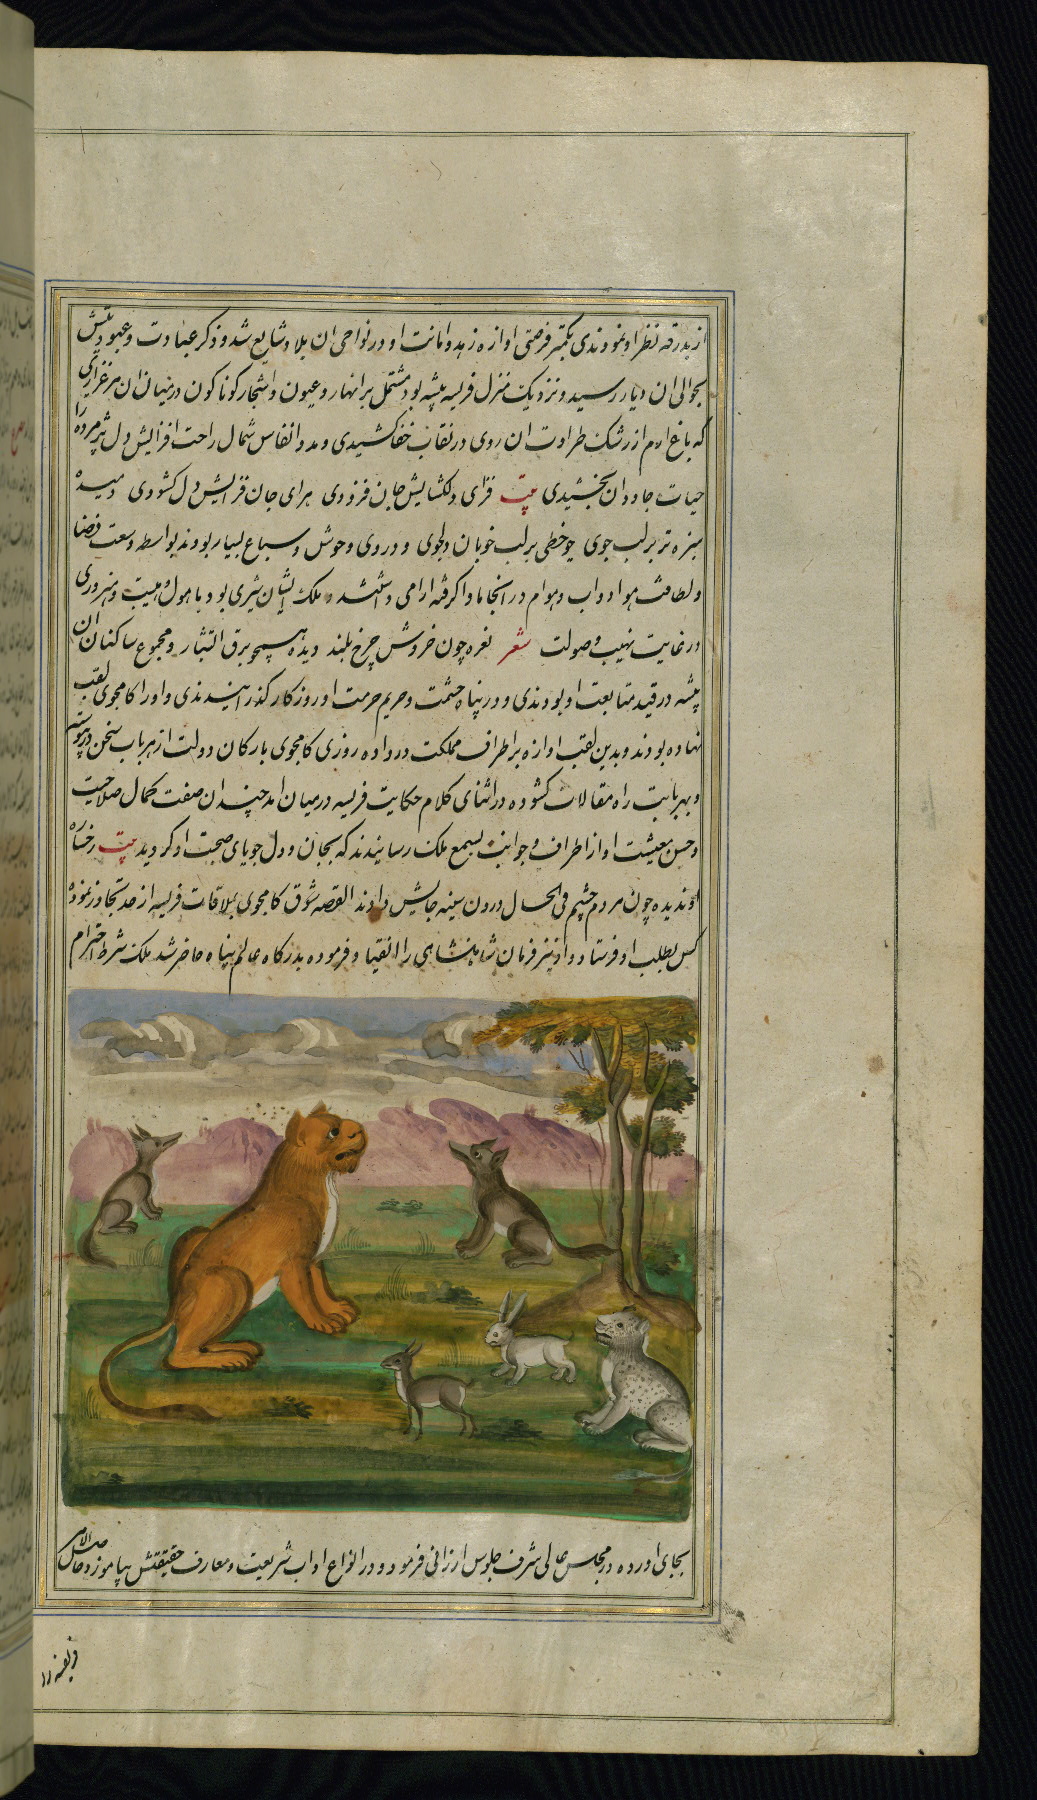 از بدرقه نظر او نمودندی بکمتر فرصتی اوازه زهد و امانت او در نواحی ان بلاد شایع شد و ذکر عبادت و عبودیتش
بحوالی ان دیار رسید و نزدیک منزل فریسه بیشه بود مشتمل بر انهار و عیون و اشجار کوناکون در میان ان مرغزاری
که باغ ارم از رشک طراوت ان روی در نقاب خفا کشیدی و مدد انفاس شمال راحت افزایش دل پژمرده را
حیات جاودان بخشیدی بیت فزای دلکشایش جان فزودی هوای جان فزایش دل کشودی دمیده
سبزه تر بر لب جوی چو خطی بر لب خوبان دلجوی و در وی وحوش و سباع بسیار بودند بواسطه وسعت فضا
و لطافت هوا دواب و هوام در انجا ماوا کرفته ارامی داشتند و ملک ایشان شیری بود با هول و هیبت و
در غایت نهیب و صولت شعر نعره چون خروش چرخ بلند دیده همچو برق و مجموع ساکنان ان
بیشه در قید متابعت او بودندی و در پناه حشمت و حریم حرمت او روزکار کذرانیدندی و او را کامجوی لقب
نهاده بودند و بدین لقب اوازه بر اطراف مملکت در داده روزی کامجوی با ارکان دولت از هر باب سخن در پیوسته
و بهر بابت راه مقالات کشوده در اثنای کلام حکایت فریسه در میان امد چندان صفت کمال صلاحیت
و حسن معیشت او از اطراف و جوانب بسمع ملک رسانیدند که بجان و دل جویای صحبت او کردید بیت رخساره
او ندیده چون مردم چشم فی الحال درون سینه جایش دادند القصه شوق کامجوی بملاقات فریسه از حد تجاوز نموده
کس بطلب او فرستاد و او نیز فرمان شاهنشاهی را انقیاد فرموده بدرکاه عالم پناه حاضر شد ملک شرط احترام
بجای اورده در مجلس عالی شرف جلوس ارزانی فرمود و در انواع اداب شریعت و معارف حقیقتش بیاموزد حاصل الامر